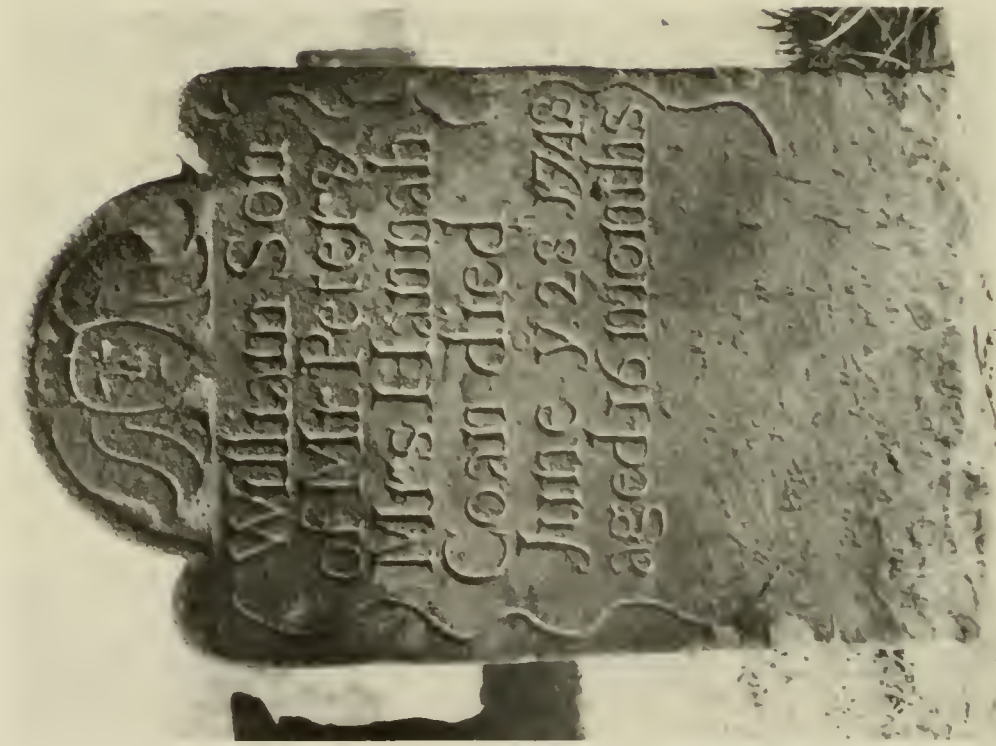 William Son
of Mr Peter &
Mrs. Hannah
Coan died
June yͤ 28 1748
aged 16 months